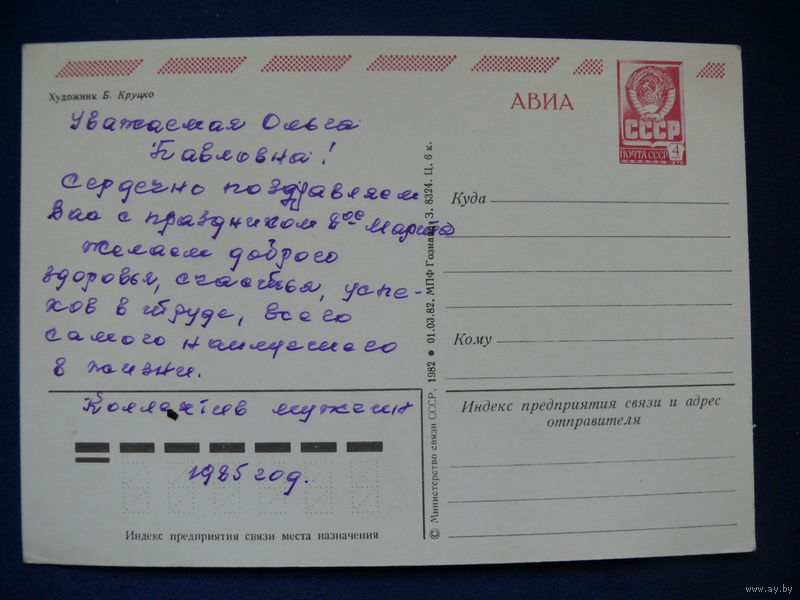 Художник Б. Круцко
АВИА
СССР
ПОЧТА СССР 4
Уважаемая Ольга
Павловна!
Сердечно поздравляем
Вас с праздником 8ое Марта
желаем доброго
здоровья, счастья, успе-
хов в труде, всего
самого наилучшего
в жизни.
Коллектив мужчин
1985 год.
Индекс предприятия связи места назначения
© Министерство связи СССР. 1982 • 01.03.82. МПФ Гознака. З. 8324. Ц. 6 к.
Куда
Кому
Индекс предприятия связи и адрес
отправителя
www.ay.by